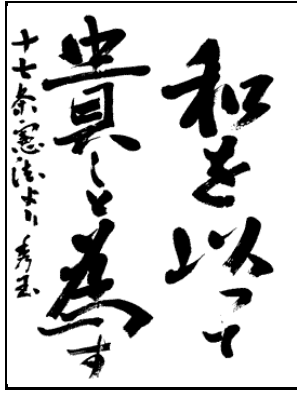 和を以って
貴しと為す
十七条憲法より 秀玉